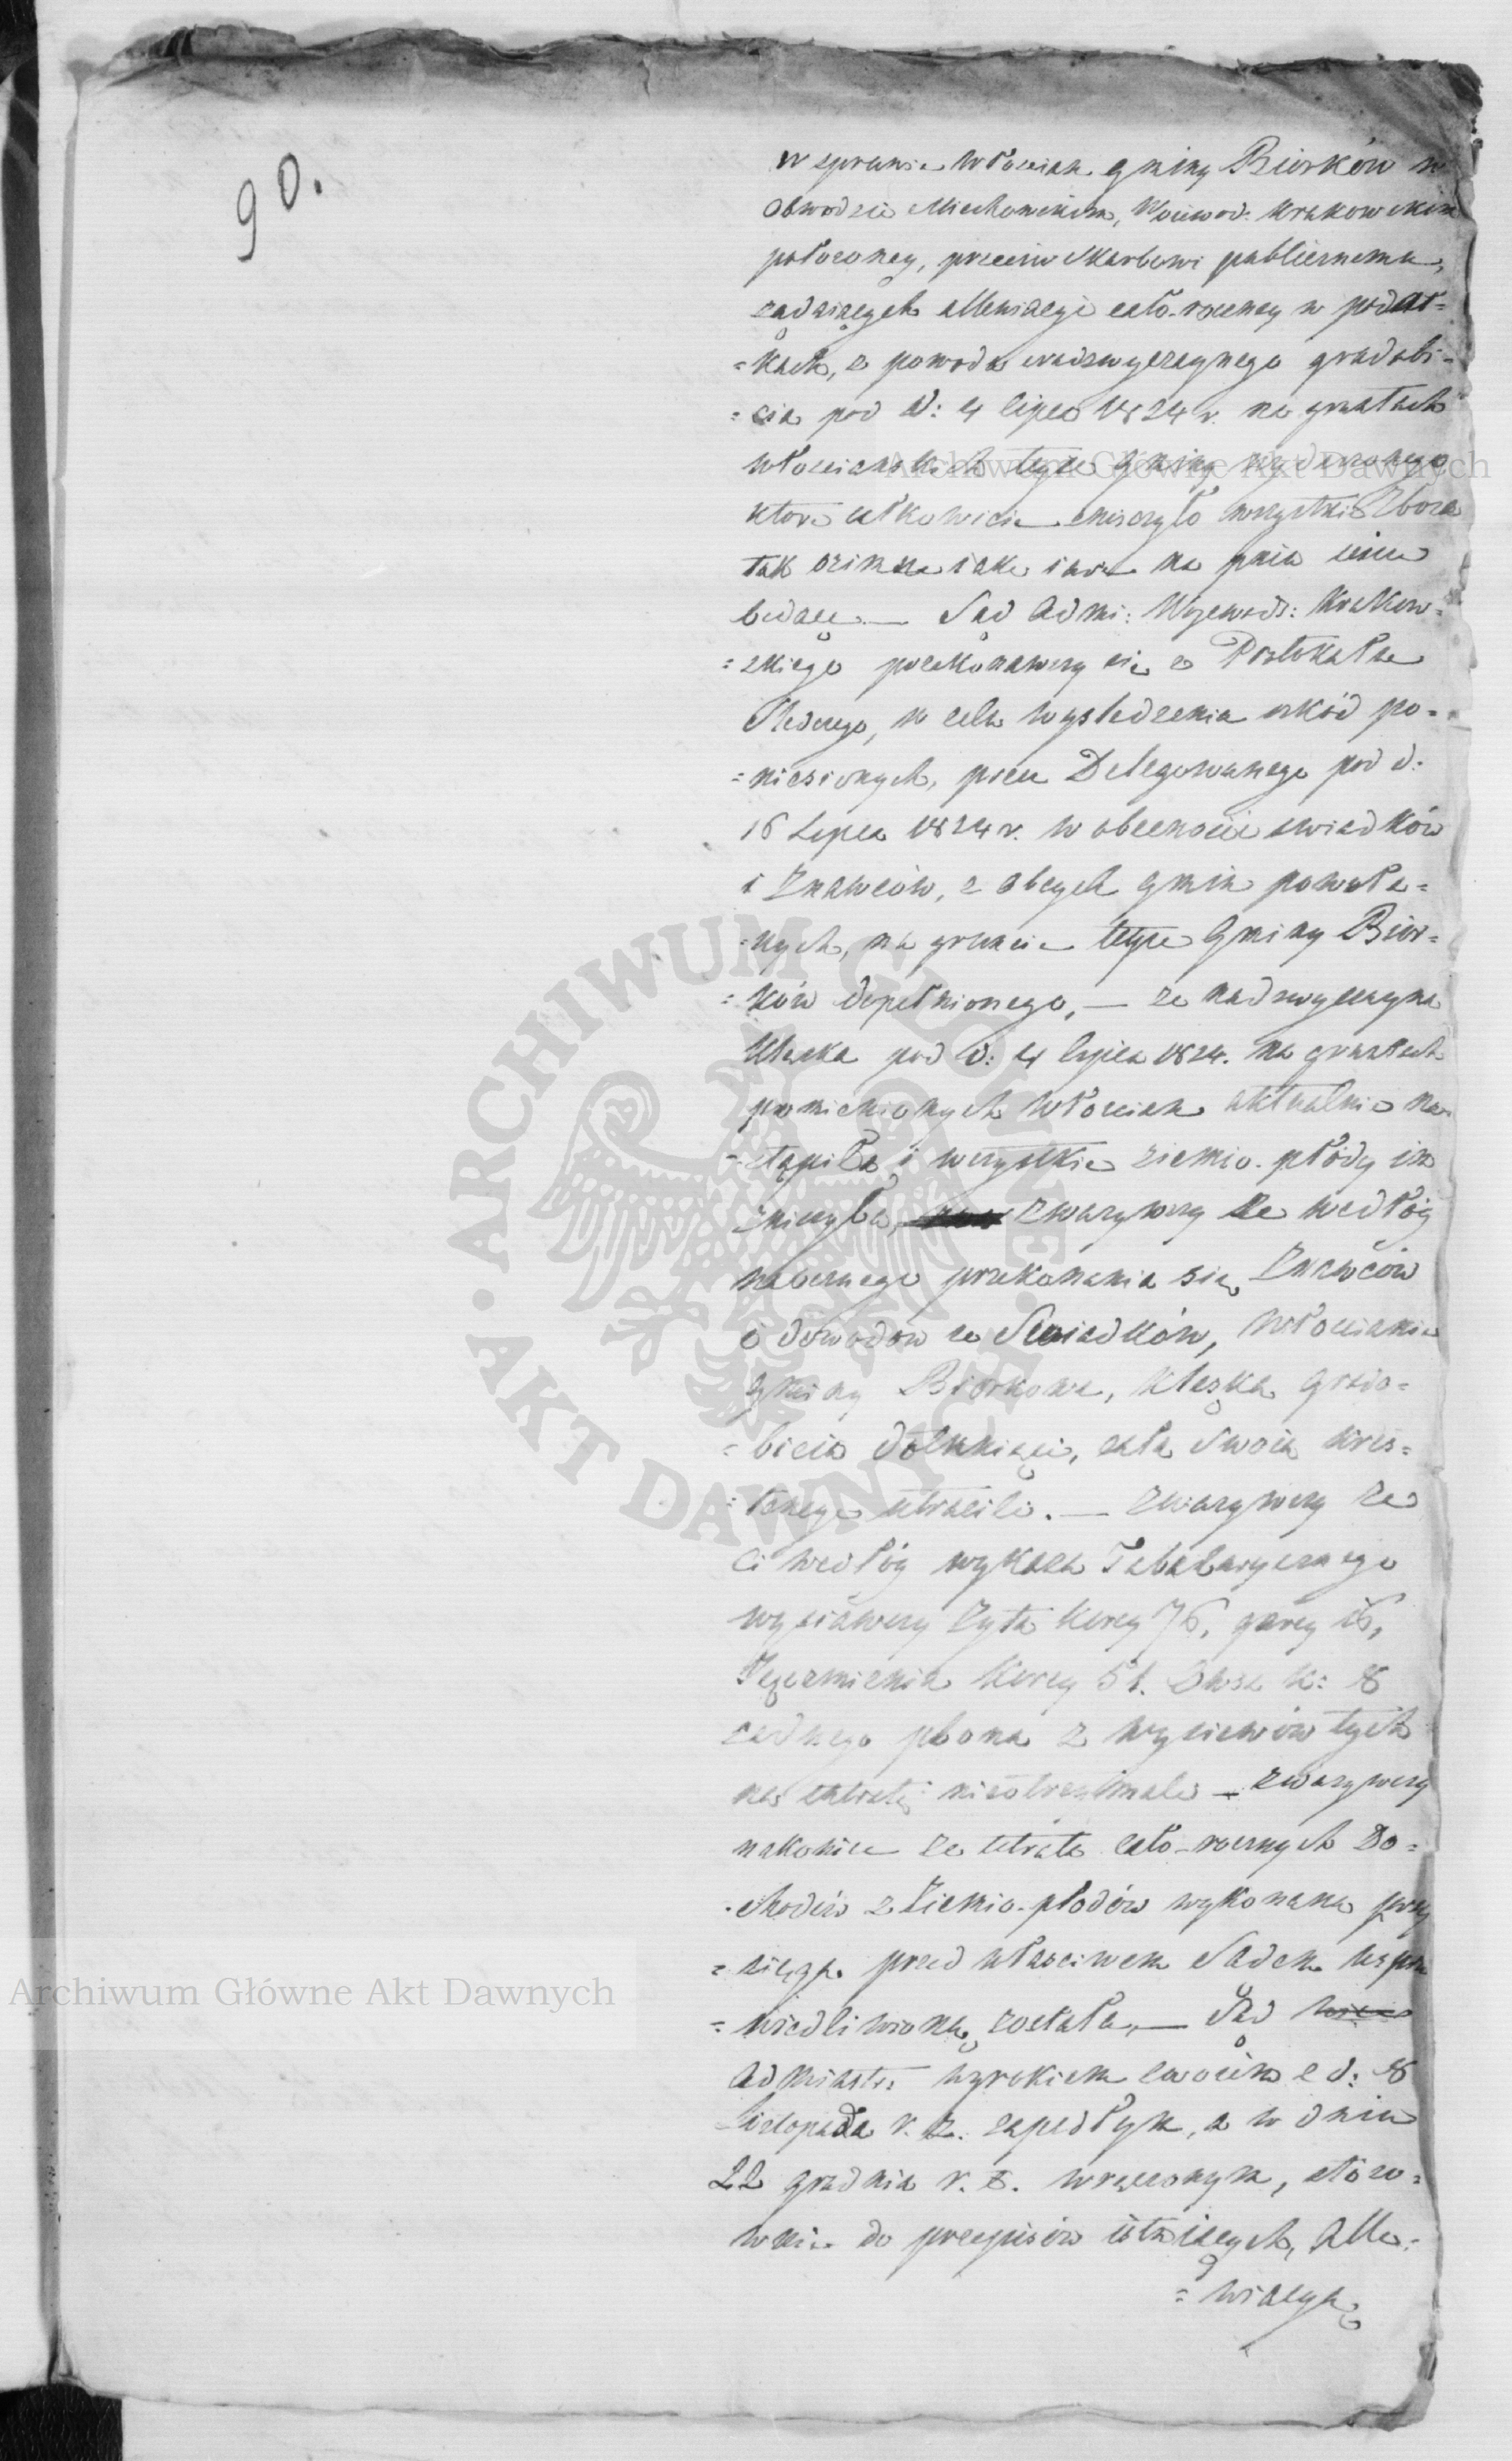 90.
w sprawie Włościan gminy Biorków w
Obwodzie Miechowskim, Woiewod: Krakowskim
położoney, przeciw Skarbowi publicznemu,
żądaiących allewiacyi cało-roczney w podat=
=kach, z powodu nadzwyczaynego gradobi=
=cia pod d: 4 lipca 1824 r. na gruntach
włościańskich teyże Gminy zdarzonego
które całkowicie zniszczyło wszystkie Zboża
tak ozime iako i iare na pniu ieszcze
będące — Sąd Admi: Wojewodz: Krakow=
=skiego przekonawszy się z Protokułu
Śledczego, w celu wyśledzenia szkód po=
=niesionych, przez Delegowanego pod d:
16 Lipca 1824 r. w obecności świadków
i Znawców, z obcych gmin powoła=
=nych, na gruncie teyże Gminy Bior=
=ków dopełnionego, — że nadzwyczayna
klęska pod d: 4 lipca 1824. na gruntach
pomienionych Włościan aktualnie na=
=stąpiła i wszystkie ziemio-płody im
zniszczyła, zważywszy że według
naocznego przekonania się Znawców
i dowodów ze Świadków, Włościanie
gminy Biorkowa, klęską grado=
=bicia dotknięci, całą swoią kres=
=tencyę utracili. — zważywszy że
ci według wykazu Tabellarycznego
wysiawszy Żyta korcy 76, garcy 16,
Jęczmienia korcy 51. Owsa k: 8
żadnego plonu z wysiewów tych
na utratę nieotrzymali — zważywszy
nakoniec że utrata cało-rocznych Do=
=chodów z Ziemio-płodów wykonaną przy
=sięgą przed właściwem Sądem uspra
=wiedliwioną została, — Sąd wiec
Administr: wyrokiem swoim z d: 8
Listopada r. z. zapadłym, a w dniu
22 grudnia r. z. wręczonym, stóso=
wnie do przepisów istnieiących, Alle=
=wiacyą
Archiwum Główne Akt Dawnych
ARCHIWUM GŁÓWNE • AKT DAWNYCH •
Archiwum Główne Akt Dawnych